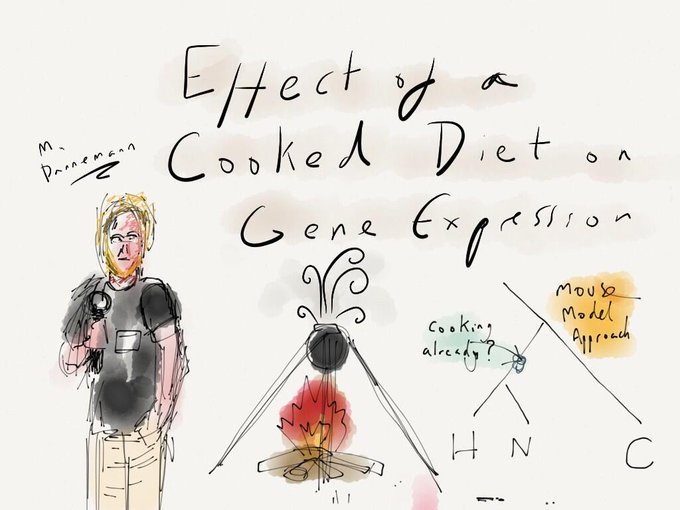 Effect of a
Cooked Diet on
Gene Expression
M. Dannemann
Mouse
Model
Approach
Cooking
already?
H N C